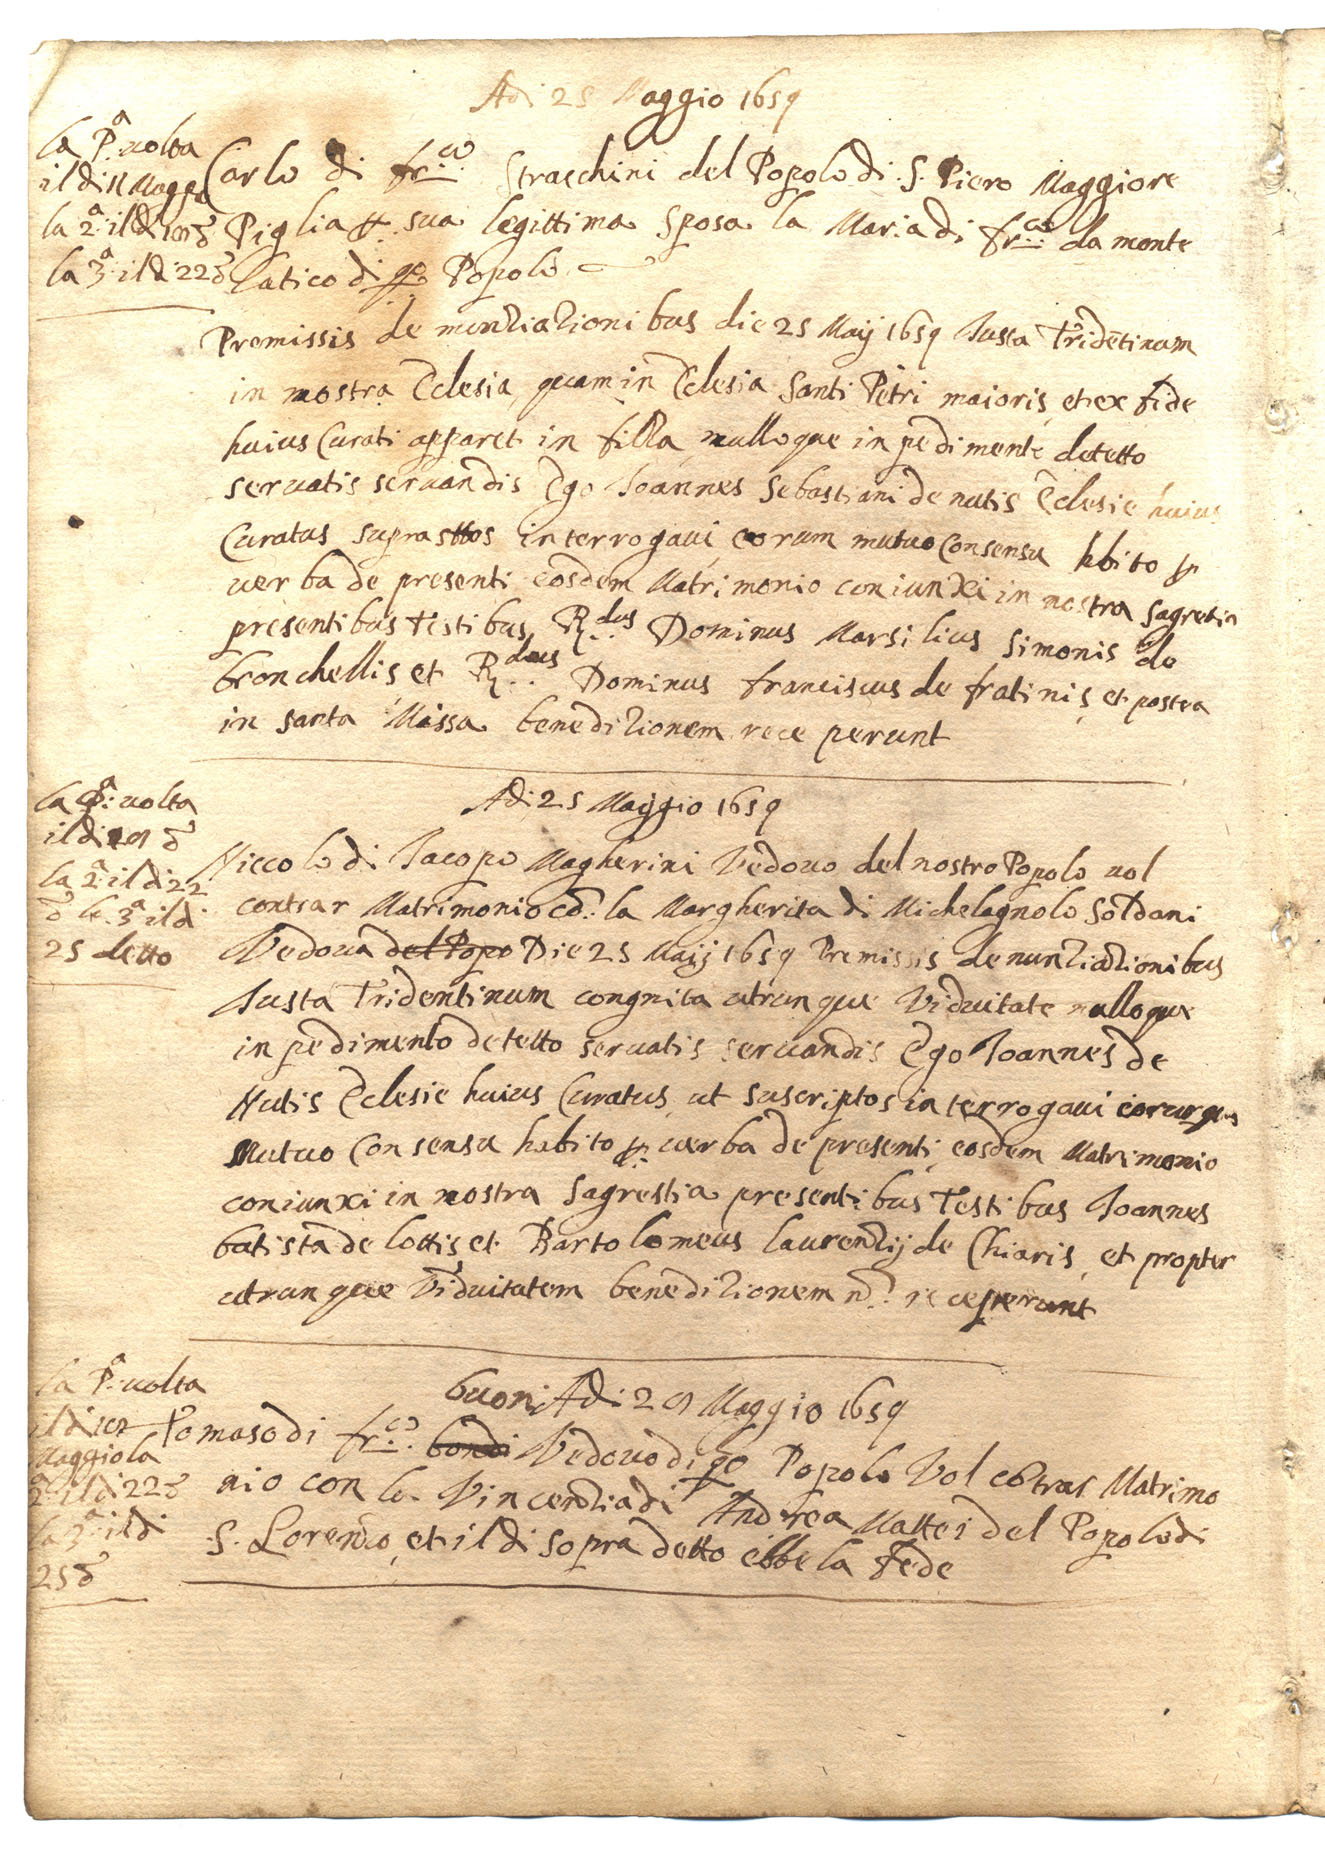 Adi 25 Maggio 1659
la Pª uolta
il di 11 Maggº
la 2ª il di 19 d
la 3ª il di 22 d
Carlo di fr.co Straechini del Popolo di S. Piero Maggiore
Piglia p sua legittima Sposa la Maria di fr.co da monte
latico di qo Popolo
Premissis denuntiationibus die 25 Maij 1659 Justa Tridētinum
in nostra Eclesia, quam in Eclesia Santi Petri maioris, et ex fide
huius Curati apparet in filla, nulloque inpedimente detetto
seruatis seruandis Ego Joannes Sebastiani de nutis Eclesie huius
Curatus suprasttos interrogaui, eorum mutuo Consensu hbito p
uerba de presenti eosdem Matrimonio coniunxi in nostra sagretia
presentibus Testibus Rdus Dominus Marsilius Simonis de
bronchellis et Rdus Dominus franciscus de fratinis, et postea
in santa Missa benedizionem receperunt
la Pª uolta
il di 19 d
la 2ª il di 22
d la 3ª il di
25 detto
Adi 25 Maggio 1659
Niccolo di Jacopo Magherini Vedouo del nostro Popolo uol
contrar Matrimonio cō la Margherita di Michelagnolo Soldani
Vedoua del Popo Die 25 Maij 1659 Premissis denuntiationibus
Justa Tridentinum congnita utrunque Viduitate nulloque
inpedimento detetto seruatis seruandis Ego Joannes de
Nutis Eclesie huius Curatus, ut suscriptos interrogaui eorumque
Mutuo Consensu habito p uerba de presenti, eosdem Matrimonio
coniunxi in nostra Sagrestia presentibus Testibus Joannes
batista de lottis et Bartolomeus laurentij de Chiaris, et propter
utrunque Viduitatem benedizionem nō receperunt
la Pª uolta
il di 19
Maggio la
2ª il di 22 d
la 3ª il di
25 d
buoni Adi 29 Maggio 1659
Tomaso di fr.co bondi Vedouo di qo Popolo Vol cōtrar Matrimo
nio con la Vincentia di Andrea Mattei del Popolo di
S. Lorenzo, et il di sopra detto ebbe la fede